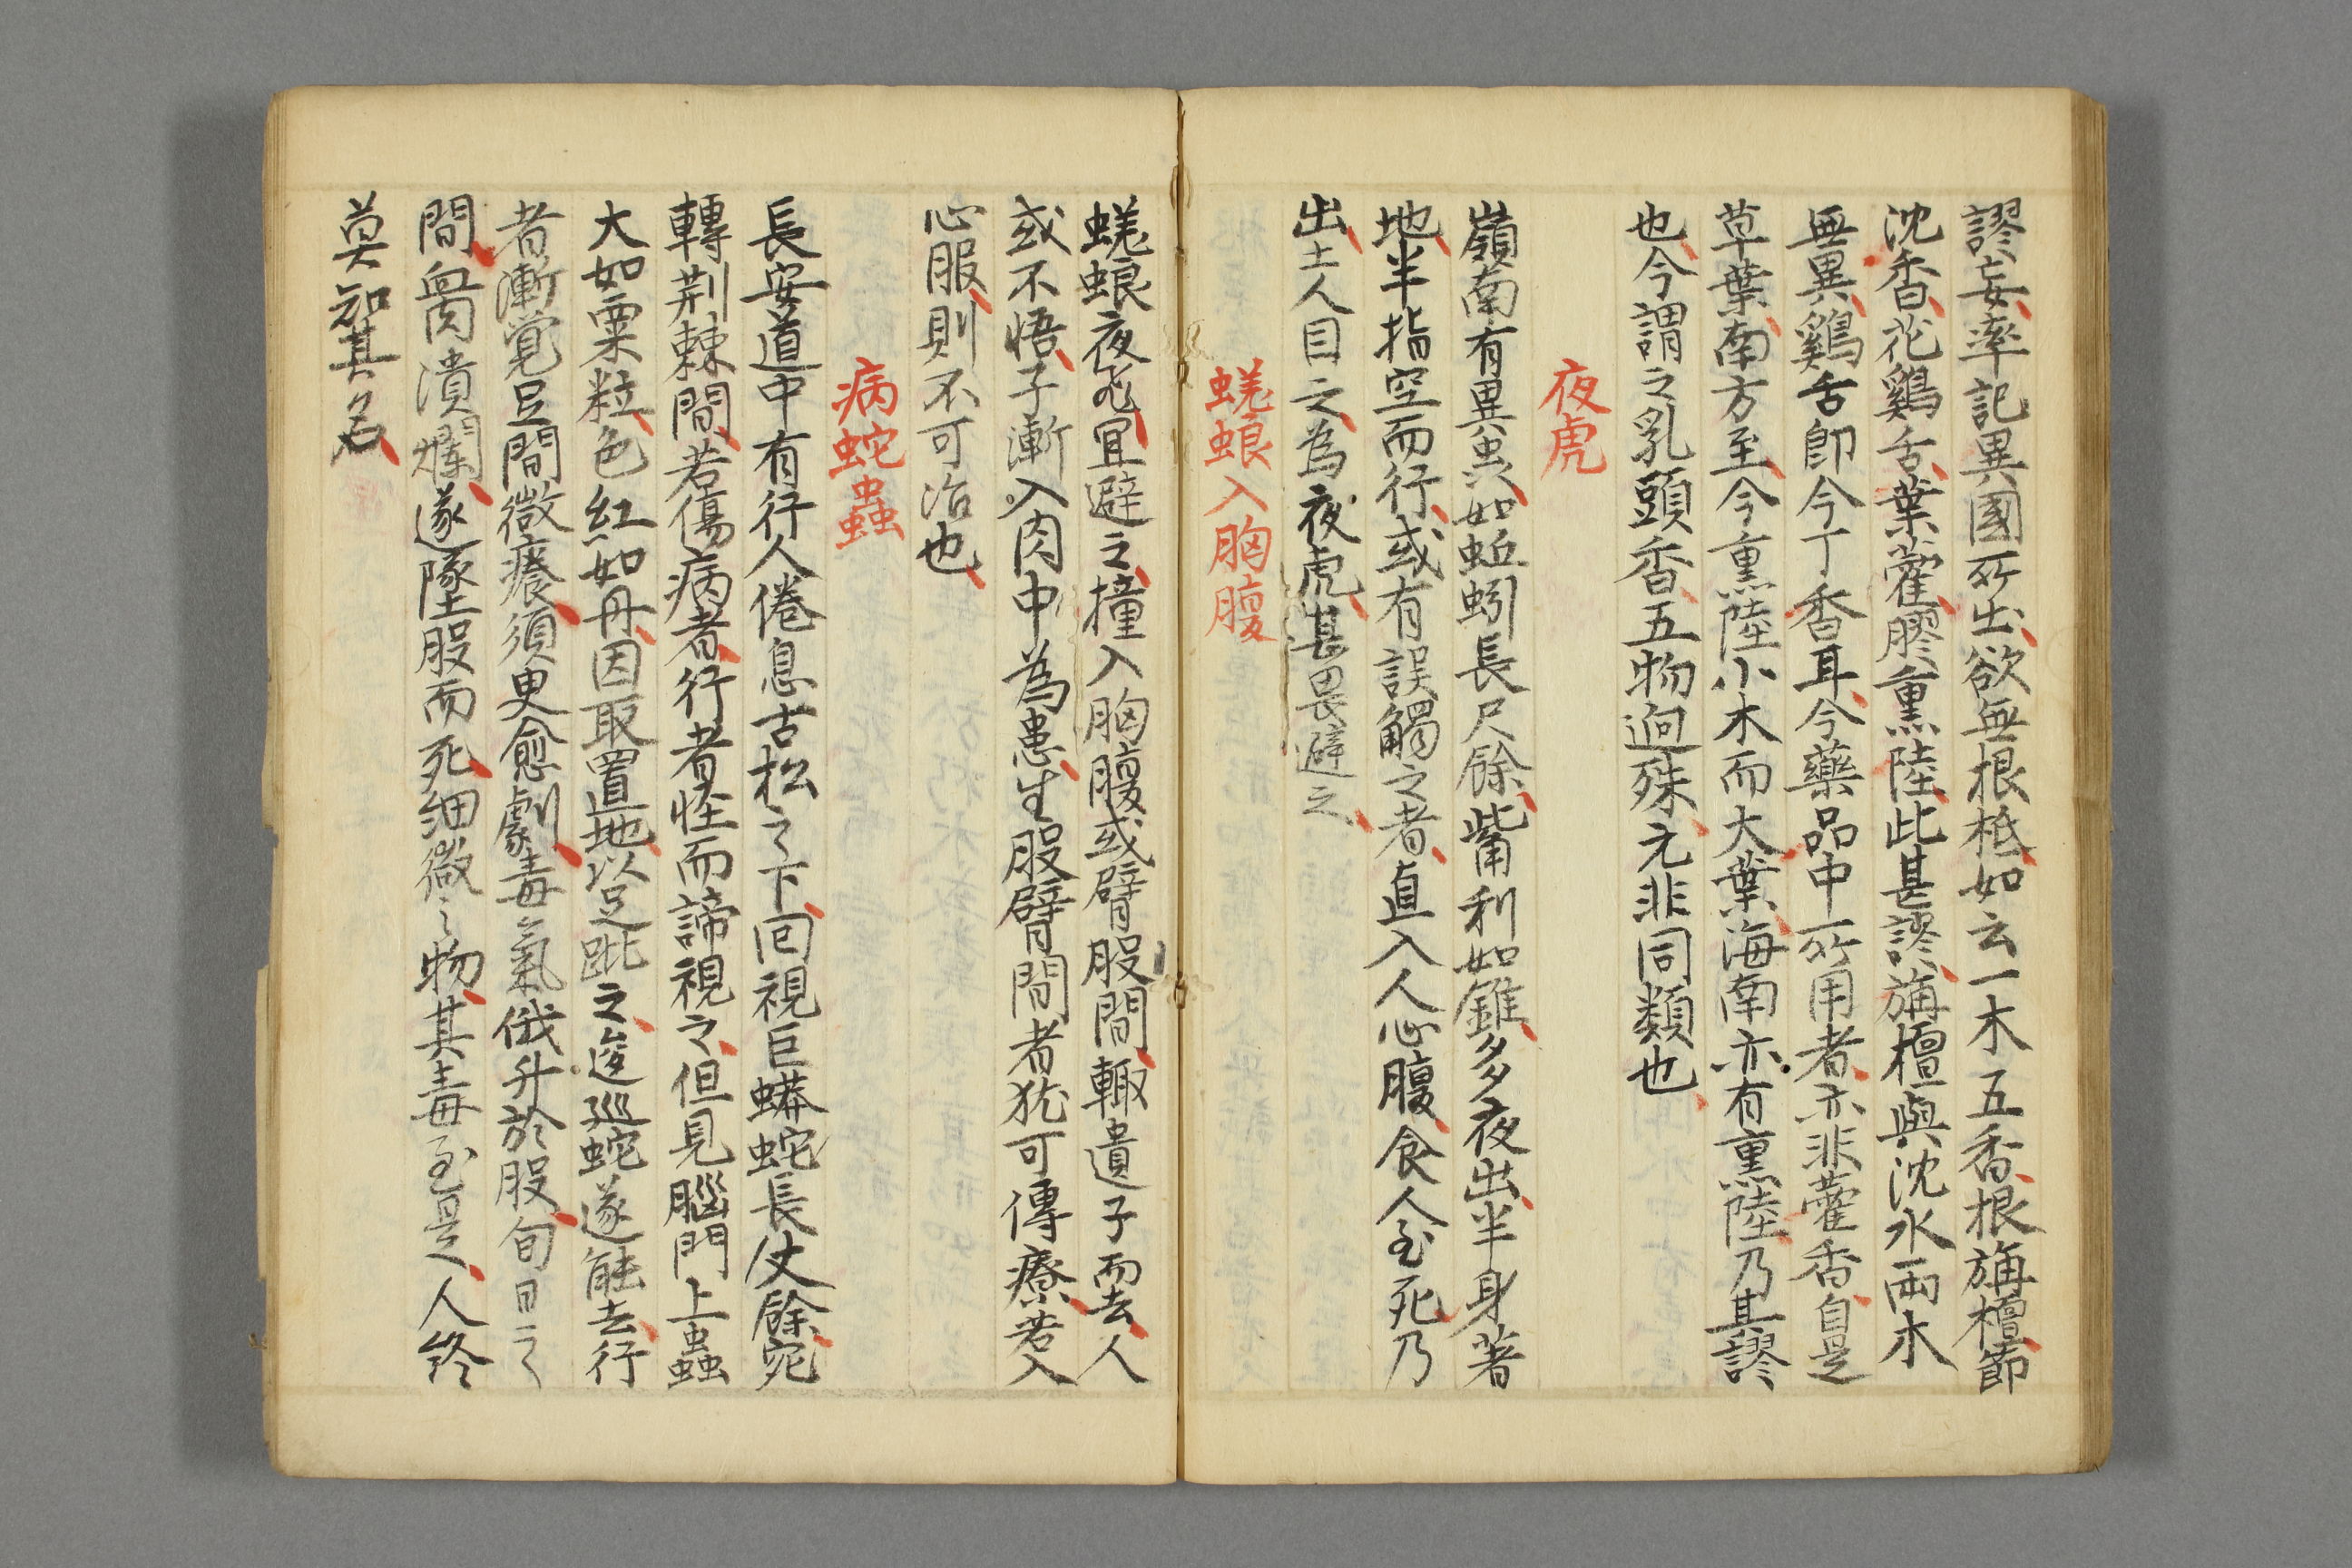 謬妄率記異國所出欲無根柢如云一木五香根旃檀節
沈香花鷄舌葉藿膠熏陸此甚謬旃檀與沈水兩木
無異鷄舌即今丁香耳今藥品中所用者亦非藿香自是
草葉南方至今熏陸小木而大葉海南亦有熏陸乃其謬
也今謂之乳頭香五物迥殊元非同類也
夜虎
嶺南有異虫如蚯蚓長尺餘觜利如錐多夜出半身著
地半指空而行或有誤觸之者直入人心腹食人至死乃
出土人目之為夜虎甚畏避之
蜣蜋入胸腹
蜣蜋夜飛宜避之撞入胸腹或臂股間輙遺子而去人
或不悟子漸入肉中為患生股臂間者犹可傳療若入
心服則不可治也
病蛇蟲
長安道中有行人倦息古松之下回視巨蟒蛇長丈餘宛
轉荆棘間若傷病者行者怪而諦視之但見腦門上蟲
大如粟粒色紅如丹因取置地以足跐之逡巡蛇遂能去行
者漸覚足間微癢須臾愈劇毒氣俄升於股旬日之
間血肉潰爛遂墜股而死細微之物其毒至是人終
莫知其名